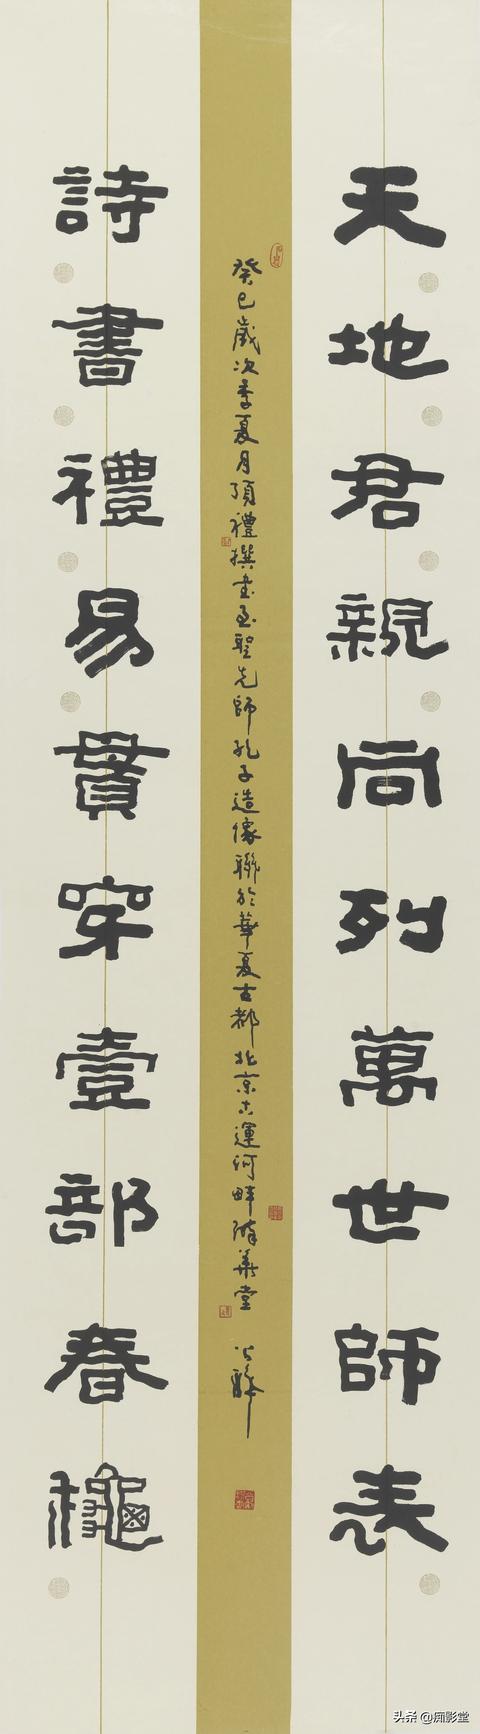 天地君親尚列萬世師表
癸巳歲次季夏月頂禮撰書至聖先師孔子造像聯於華夏古都北京古運河畔華堂
詩書禮易貫穿壹部春龝
头条 @痴影堂